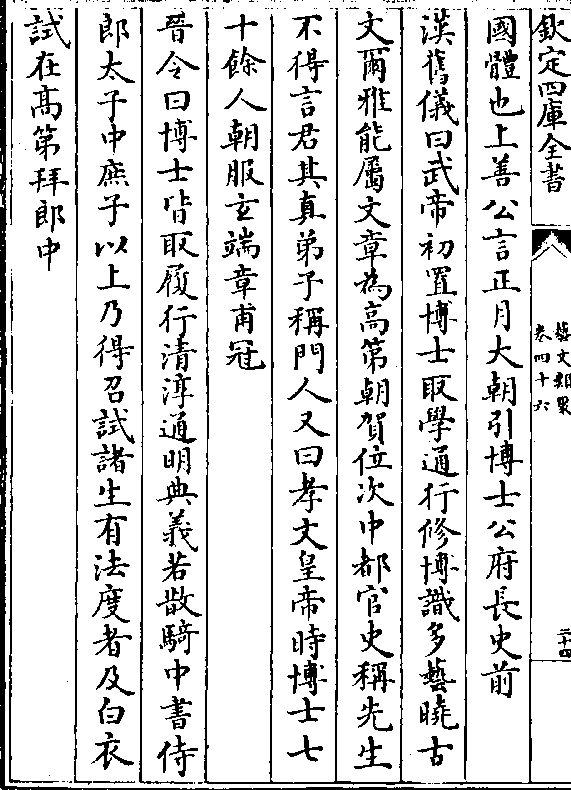 欽定四庫全書
藝文類聚
卷四十六
二十四
國體也上善公言正月大朝引博士公府長史前
漢舊儀曰武帝初置博士取學通行修博識多藝曉古
文爾雅能屬文章為高第朝賀位次中都官史稱先生
不得言君其真弟子稱門人又曰孝文皇帝時博士七
十餘人朝服玄端章甫冠
晉令曰博士皆取履行清淳通明典義若散騎中書侍
郎太子中庶子以上乃得召試諸生有法度者及白衣
試在髙第拜郎中